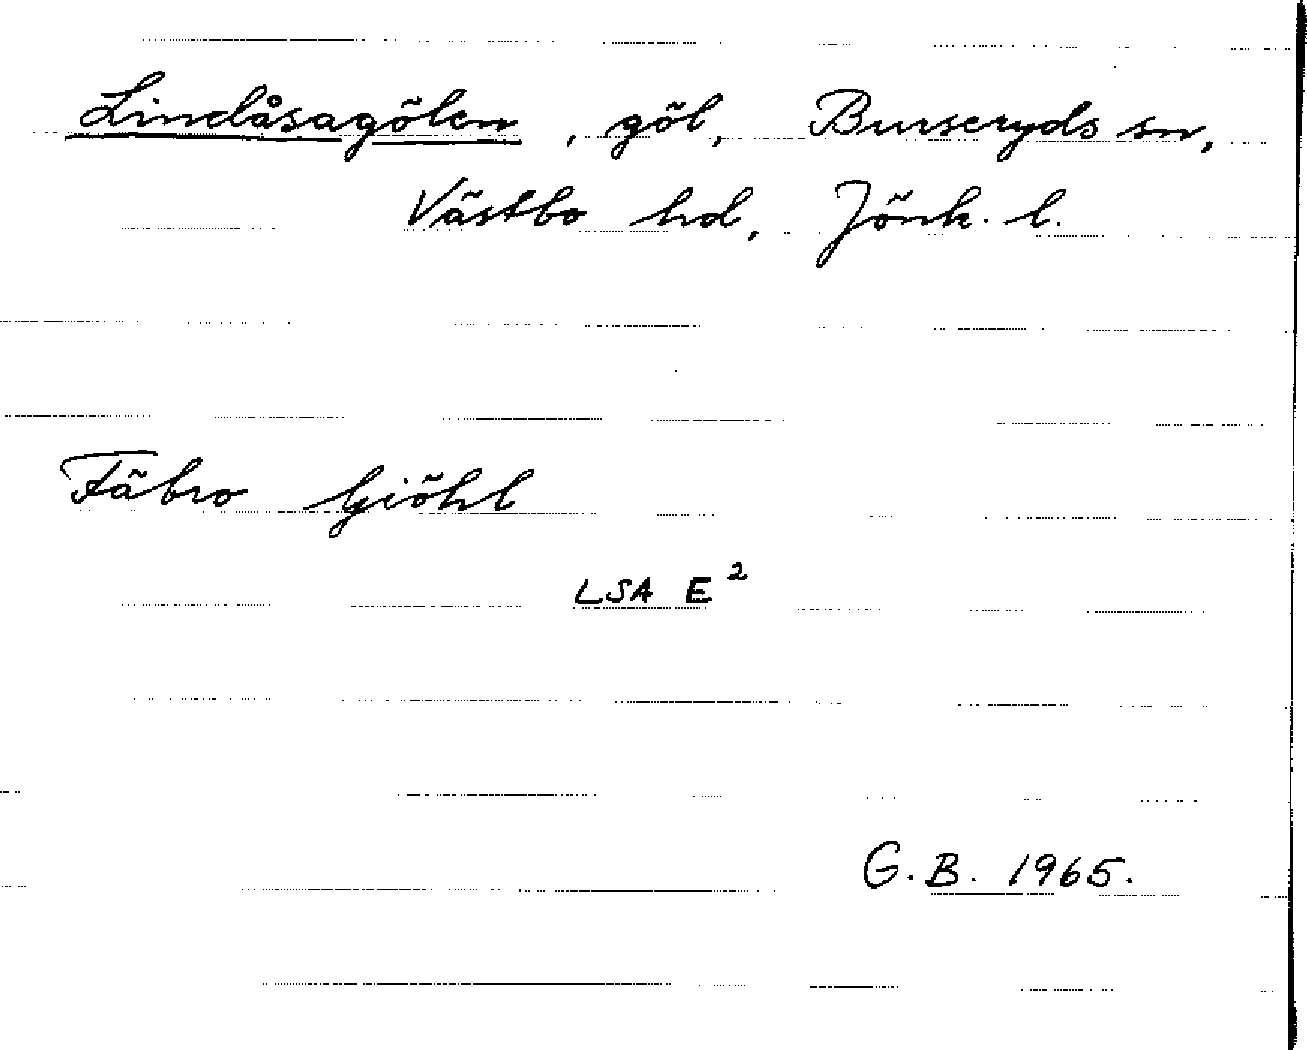 Lindåsagölen, göl, Burseryds sn,
Västbo hd, Jönk. l.
Fäbro Giöhl
LSA E²
G.B. 1965.